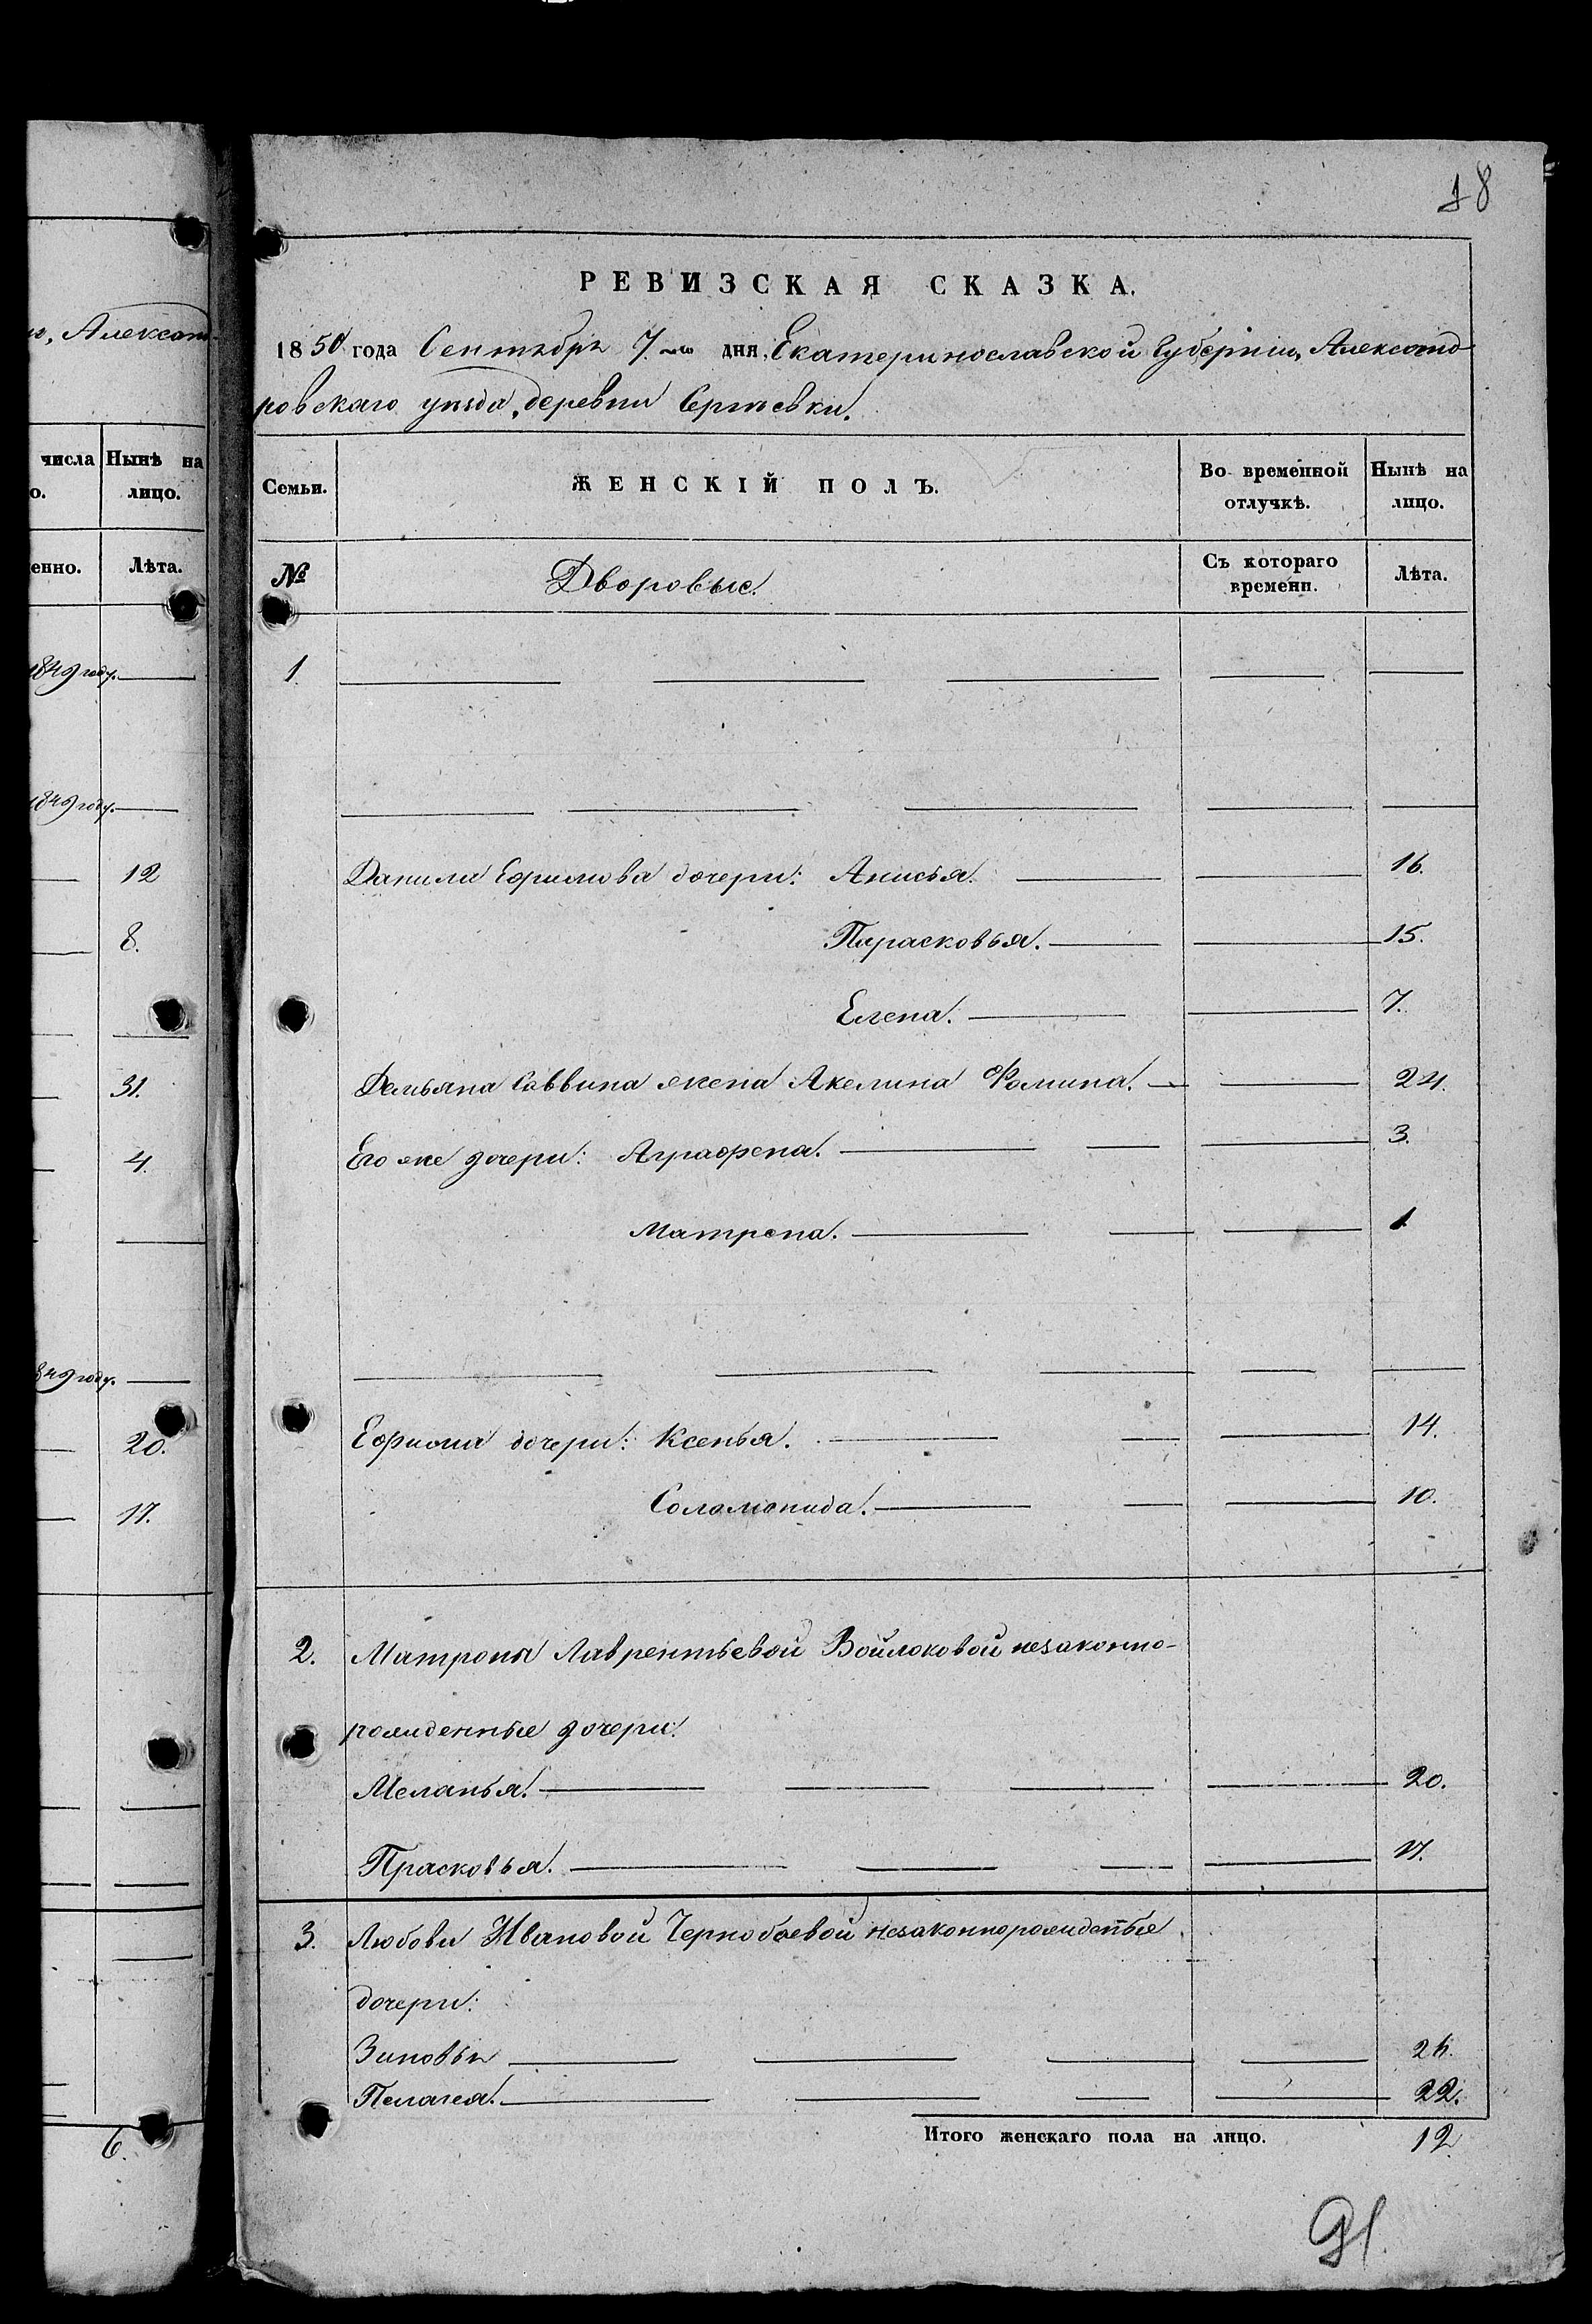 18
РЕВИЗСКАЯ СКАЗКА.
1850 года Сентября 7.го дня, Екатеринославской Губерніи, Александ-
ровскаго уѣзда, деревни Сергѣевки.
Александ-
числа Нынѣ на
о. лицо.
енно. Лѣта.
1849 году.
1849 году.
12
8.
31.
4.
849 году.
20.
17.
6.
Семьи. ЖЕНСКІЙ ПОЛЪ. Во временной отлучкѣ. Нынѣ на лицо.
№ Дворовые. Съ котораго времени. Лѣта.
1.
Данила Ефимова дочери: Анисья. 16.
Парасковья. 15.
Елена. 7.
Демьяна Саввина жена Акелина Фомина. 24.
Его же дочери: Аграфена. 3.
Матрена. 1
Ефима дочери: Ксенья. 14.
Соломонида. 10.
2. Матроны Лаврентьевой Войлоковой незаконно-
рожденные дочери:
Меланья. 20.
Прасковья. 17.
3. Любови Ивановой Чернобаевой незаконнорожденые
дочери:
Зиновья
Пелагея. 22.
Итого женскаго пола на лицо. 12.